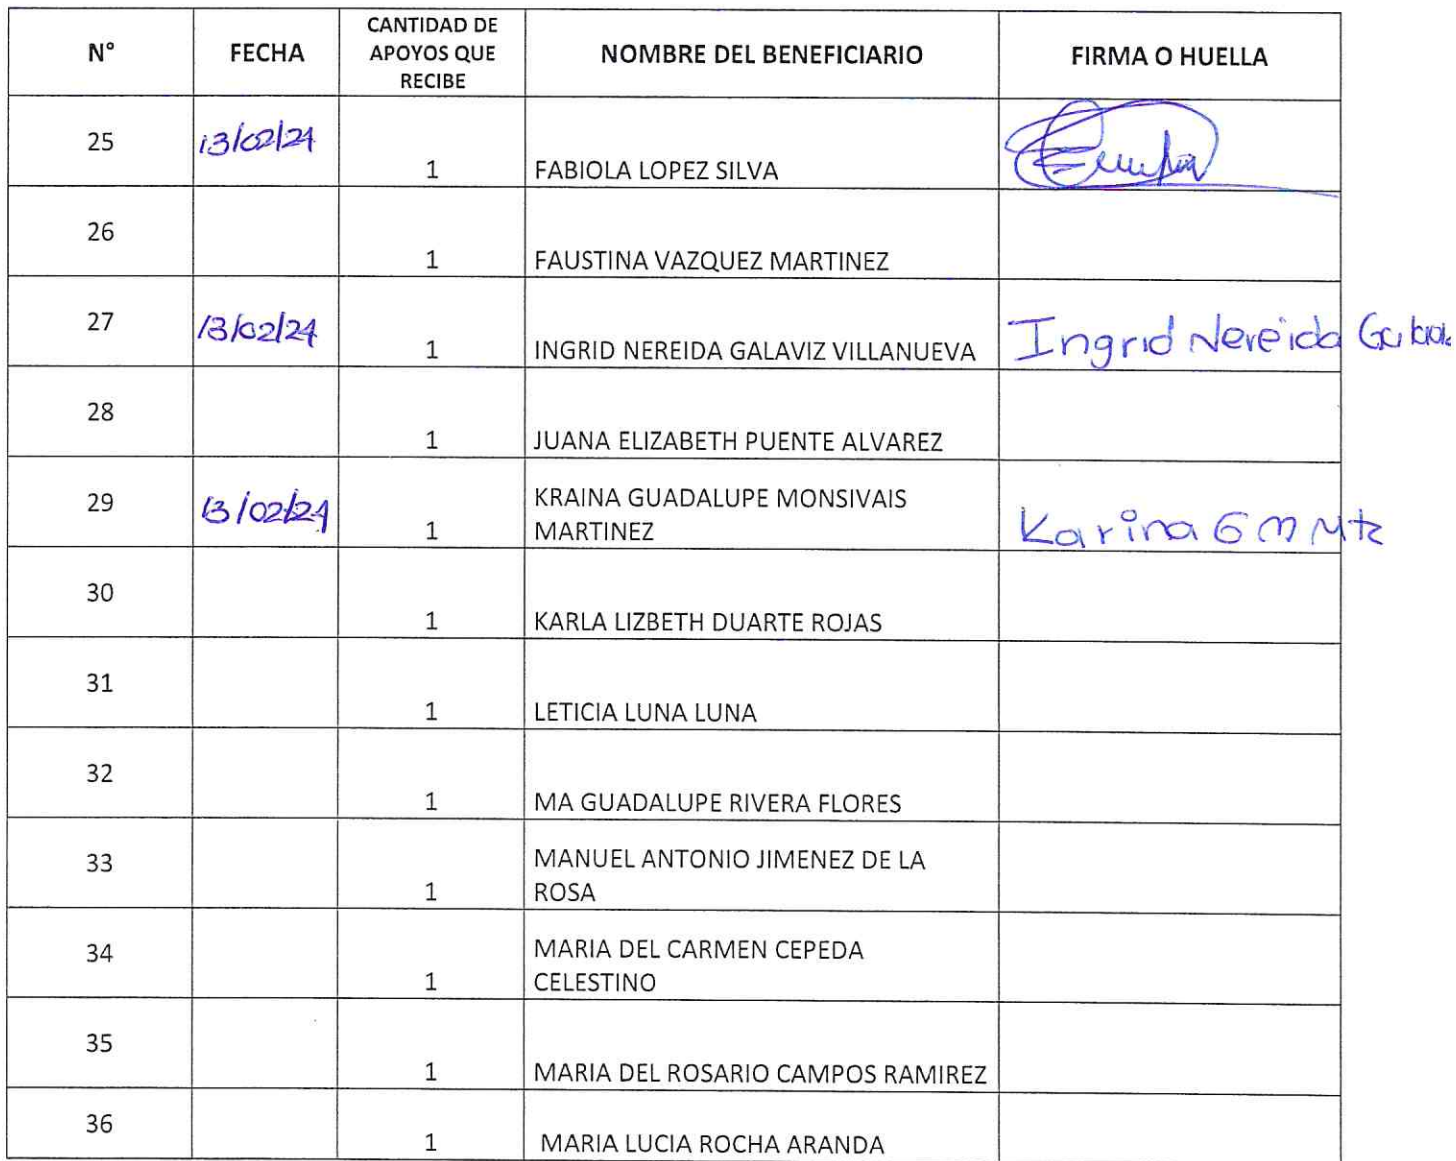 N° FECHA CANTIDAD DE APOYOS QUE RECIBE NOMBRE DEL BENEFICIARIO FIRMA O HUELLA
25 13/02/24 1 FABIOLA LOPEZ SILVA
26 1 FAUSTINA VAZQUEZ MARTINEZ
27 13/02/24 1 INGRID NEREIDA GALAVIZ VILLANUEVA Ingrid Nereida
28 1 JUANA ELIZABETH PUENTE ALVAREZ
29 13/02/24 1 KRAINA GUADALUPE MONSIVAIS MARTINEZ Karina G M Mtz
30 1 KARLA LIZBETH DUARTE ROJAS
31 1 LETICIA LUNA LUNA
32 1 MA GUADALUPE RIVERA FLORES
33 1 MANUEL ANTONIO JIMENEZ DE LA ROSA
34 1 MARIA DEL CARMEN CEPEDA CELESTINO
35 1 MARIA DEL ROSARIO CAMPOS RAMIREZ
36 1 MARIA LUCIA ROCHA ARANDA